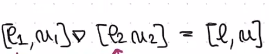 [l₁,u₁] ▽ [l₂ u₂] = [l,u]